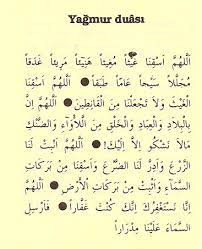 Yağmur duâsı
اَللّٰهُمَّ اَسْقِنَا غَيْثًا مُغِيثًا هَنِيئًا مَرِيئًا غَدَقًا
مُجَلِّلًا سَيْحًا عَامًّا طَبَقًا ● اَللّٰهُمَّ اَسْقِنَا
الْغَيْثَ وَلَا تَجْعَلْنَا مِنَ الْقَانِطِينَ ● اَللّٰهُمَّ اِنَّ
بِالْبِلَادِ وَالْعِبَادِ وَالْخَلْقِ مِنَ اللَّأْوَاءِ وَالضَّنْكِ
مَالَا نَشْكُو اِلَّا اِلَيْكَ! ● اَللّٰهُمَّ اَنْبِتْ لَنَا
الزَّرْعَ وَاَدِرَّ لَنَا الضَّرْعَ وَاَسْقِنَا مِنْ بَرَكَاتِ
السَّمَاءِ وَاَنْبِتْ مِنْ بَرَكَاتِ الْاَرْضِ ● اَللّٰهُمَّ
اِنَّا نَسْتَغْفِرُكَ اِنَّكَ كُنْتَ غَفَّارًا ● فَاَرْسِلِ
السَّمَاءَ عَلَيْنَا مِدْرَارًا